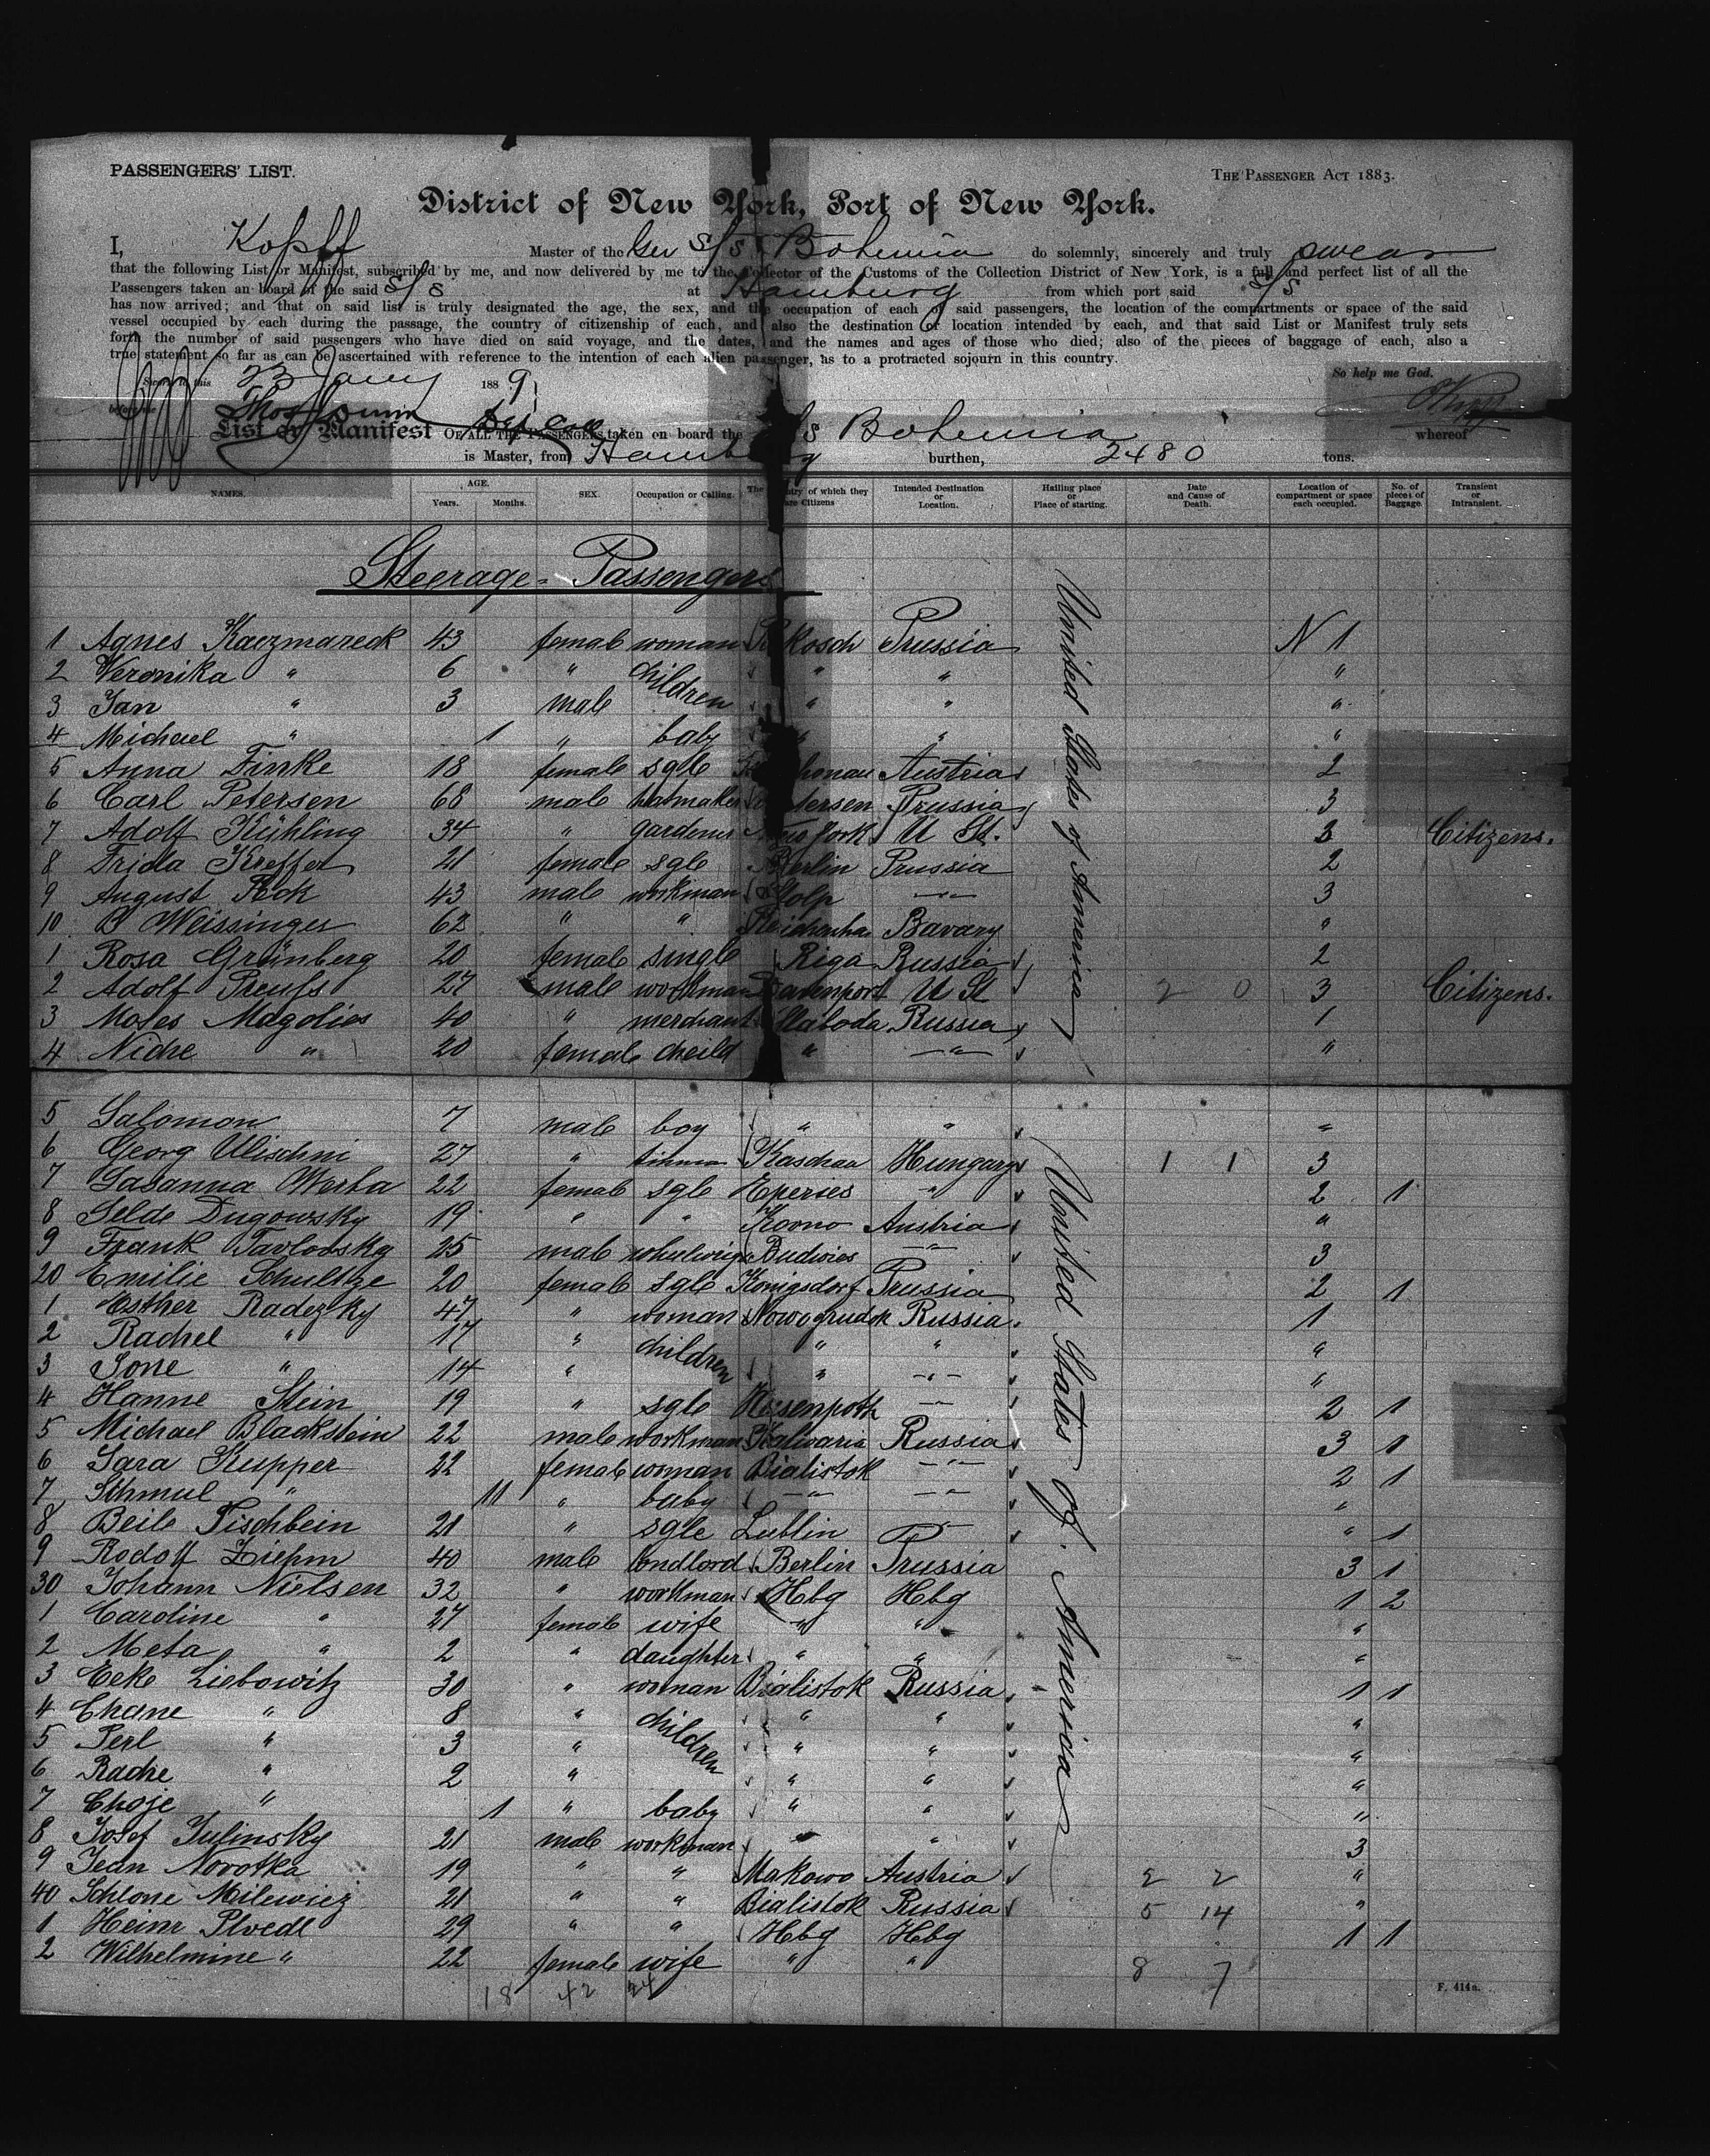 PASSENGERS' LIST.
THE PASSENGER ACT 1883.
District of New York, Port of New York.
I, Kopff Master of the Ger S/S Bohemia do solemnly, sincerely and truly swear
that the following List or Manifest, subscribed by me, and now delivered by me to the Collector of the Customs of the Collection District of New York, is a full and perfect list of all the
Passengers taken on board of the said S/S at Hamburg from which port said S/S
has now arrived; and that on said list is truly designated the age, the sex, and the occupation of each of said passengers, the location of the compartments or space of the said
vessel occupied by each during the passage, the country of citizenship of each, and also the destination or location intended by each, and that said List or Manifest truly sets
forth the number of said passengers who have died on said voyage, and the dates, and the names and ages of those who died; also of the pieces of baggage of each, also a
true statement so far as can be ascertained with reference to the intention of each alien passenger, as to a protracted sojourn in this country.
Sworn to this 23 Jany 1889
So help me God.
before me
List or Manifest OF ALL THE PASSENGERS taken on board the S/S Bohemia whereof
is Master, from Hamburg burthen, 2480 tons.
NAMES. AGE. Years. Months. SEX. Occupation or Calling. The Country of which they are Citizens Intended Destination or Location. Hailing place or Place of starting. Date and Cause of Death. Location of compartment or space each occupied. No. of pieces of Baggage. Transient or Intransient.
Steerage = Passengers
United States of America
1 Agnes Kaczmareck 43 female woman kosch Prussia N 1
2 Veronika " 6 " children " " "
3 Jan " 3 male " " "
4 Michael " 1 " baby " " "
5 Anna Finke 18 female sgle honau Austria 2
6 Carl Petersen 68 male hatmaker tersen Prussia 3
7 Adolf Kühling 34 " gardener New York U St. 3 Citizens.
8 Frida Kreffer 21 female sgle Berlin Prussia 2
9 August Pock 43 male workman Stolp " 3
10 B Weissinger 62 " " Reichenha Bavary "
1 Rosa Grünberg 20 female single Riga Russia 2
2 Adolf Preufs 27 male workman Davenport U St 2 0 3 Citizens.
3 Moses Magolies 40 " merchant Slaboda Russia 1
4 Niche " 20 female cheild " " "
5 Salomon 7 male boy " " "
6 Georg Ulischni 27 " Kaschau Hungary 1 1 3
7 Sasanna Werba 22 female sgle Eperies " 2 1
8 Selde Dugowsky 19 " " Kovno Austria "
9 Frank Pavlovsky 25 male wheelwrigh Budwies " 3
20 Emilie Schultze 20 female sgle Königsdorf Prussia 2 1
1 Esther Radezky 47 " woman Nowogrudek Russia 1
2 Rachel " 17 " children " " "
3 Sone " 14 " " " "
4 Hanne Stein 19 " sgle Hasenpoth " 2 1
5 Michael Blackstein 22 male workman Kalwaria Russia 3 1
6 Sara Kupper 22 female woman Bialistok " 2 1
7 Schmul " 11 " baby " " "
8 Beile Fischbein 21 " sgle Lublin " " 1
9 Rodolf Ziehm 40 male landlord Berlin Prussia 3 1
30 Johann Nielsen 32 " workman Hbg Hbg 1 2
1 Caroline " 27 female wife " " "
2 Meta " 2 " daughter " " "
3 Ecke Liebowitz 30 " woman Bialistok Russia 1 1
4 Chane " 8 " children " " "
5 Perl " 3 " " " "
6 Rache " 2 " " " "
7 Choje " 1 " baby " " "
8 Josef Julinsky 21 male workman " " 3
9 Jean Novotka 19 " " Makowo Austria 2 2 "
40 Schlone Milewicz 21 " " Bialistok Russia 5 14 "
1 Heinr Plvedt 29 " " Hbg Hbg 1 1
2 Wilhelmine " 22 female wife " " 8 7
United States of America
18 42 24
F. 414a.